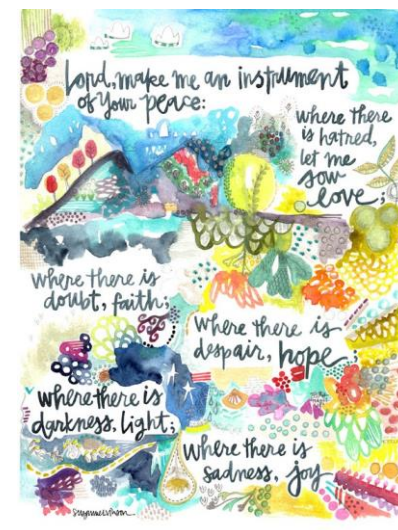 Lord, make me an instrument
of Your peace:
where there
is hatred,
let me
sow
love;
where there is
doubt, faith;
where there is
despair, hope;
where there is
darkness, light;
where there is
sadness, joy